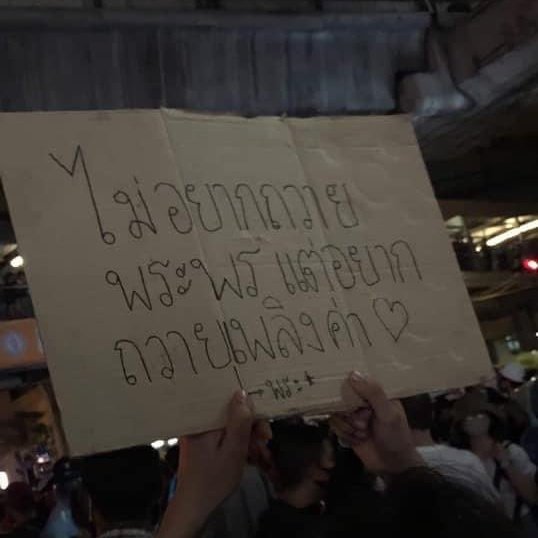 ไม่อยากถวาย
พระพร แต่อยาก
ถวายเพลิงค่า ♡
→ พระ +